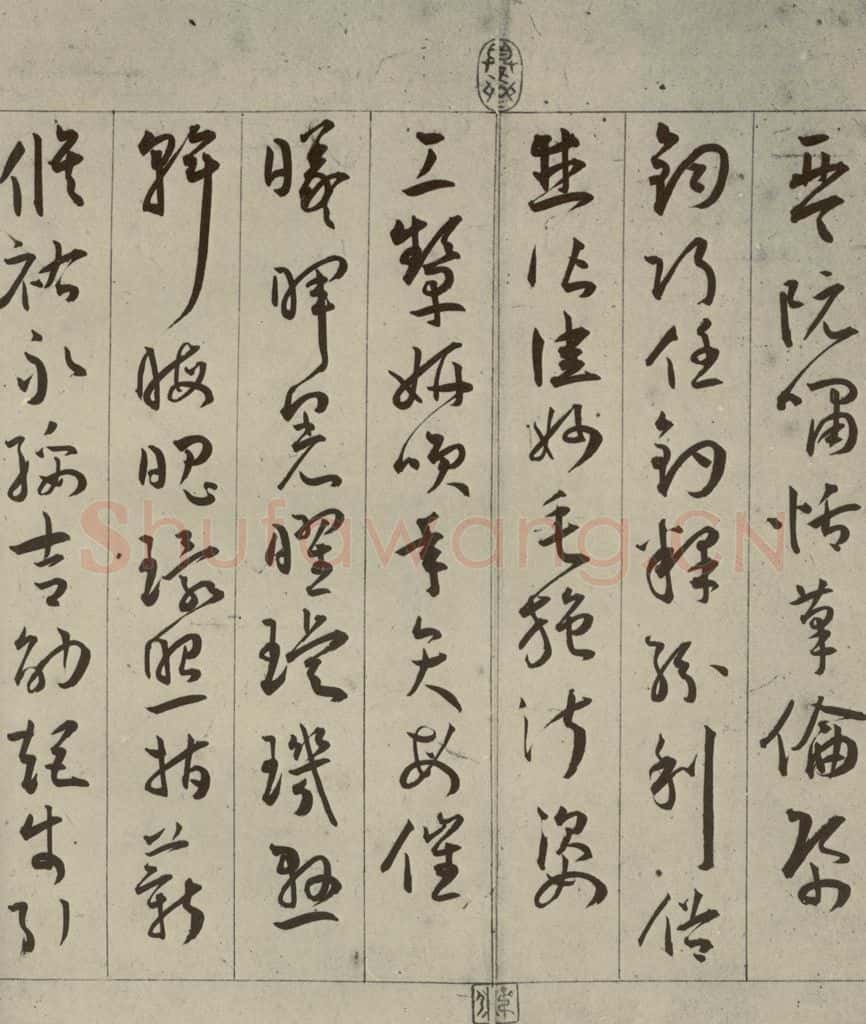 琴阮嘯恬筆倫紙
鈞巧任釣釋紛利俗
並皆佳妙毛施淑姿
工顰妍咲年矢每催
曦暉晃曜璇璣懸
斡晦魄環照指薪
脩祜永綏吉劭矩步引
Shufawang.CN